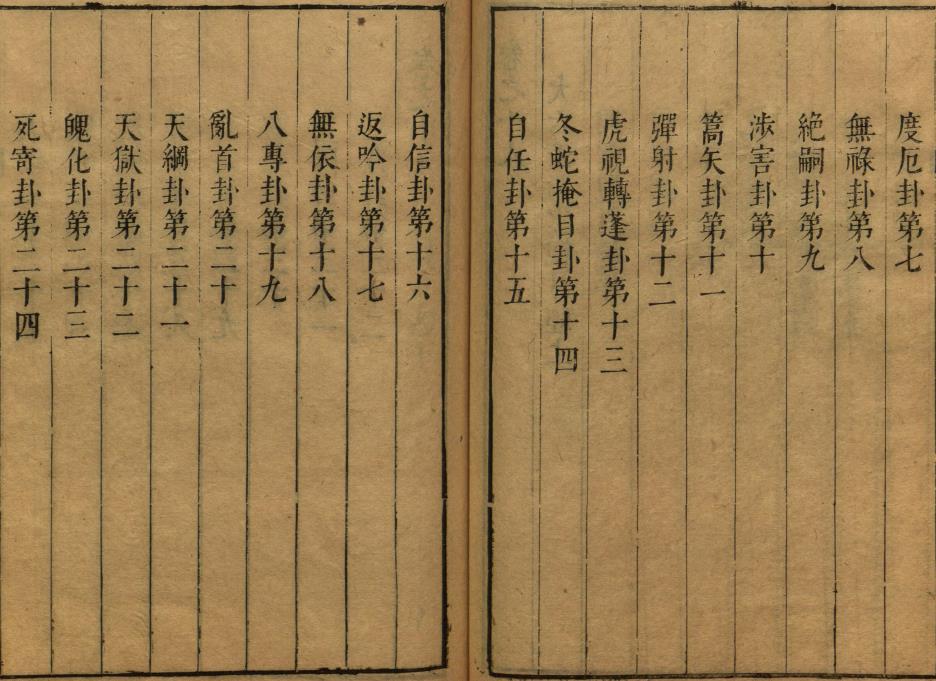 度厄卦第七
無祿卦第八
絶嗣卦第九
涉害卦第十
篙矢卦第十一
彈射卦第十二
虎視轉蓬卦第十三
冬蛇掩目卦第十四
自任卦第十五
自信卦第十六
返吟卦第十七
無依卦第十八
八專卦第十九
亂首卦第二十
天綱卦第二十一
天獄卦第二十二
魄化卦第二十三
死寄卦第二十四